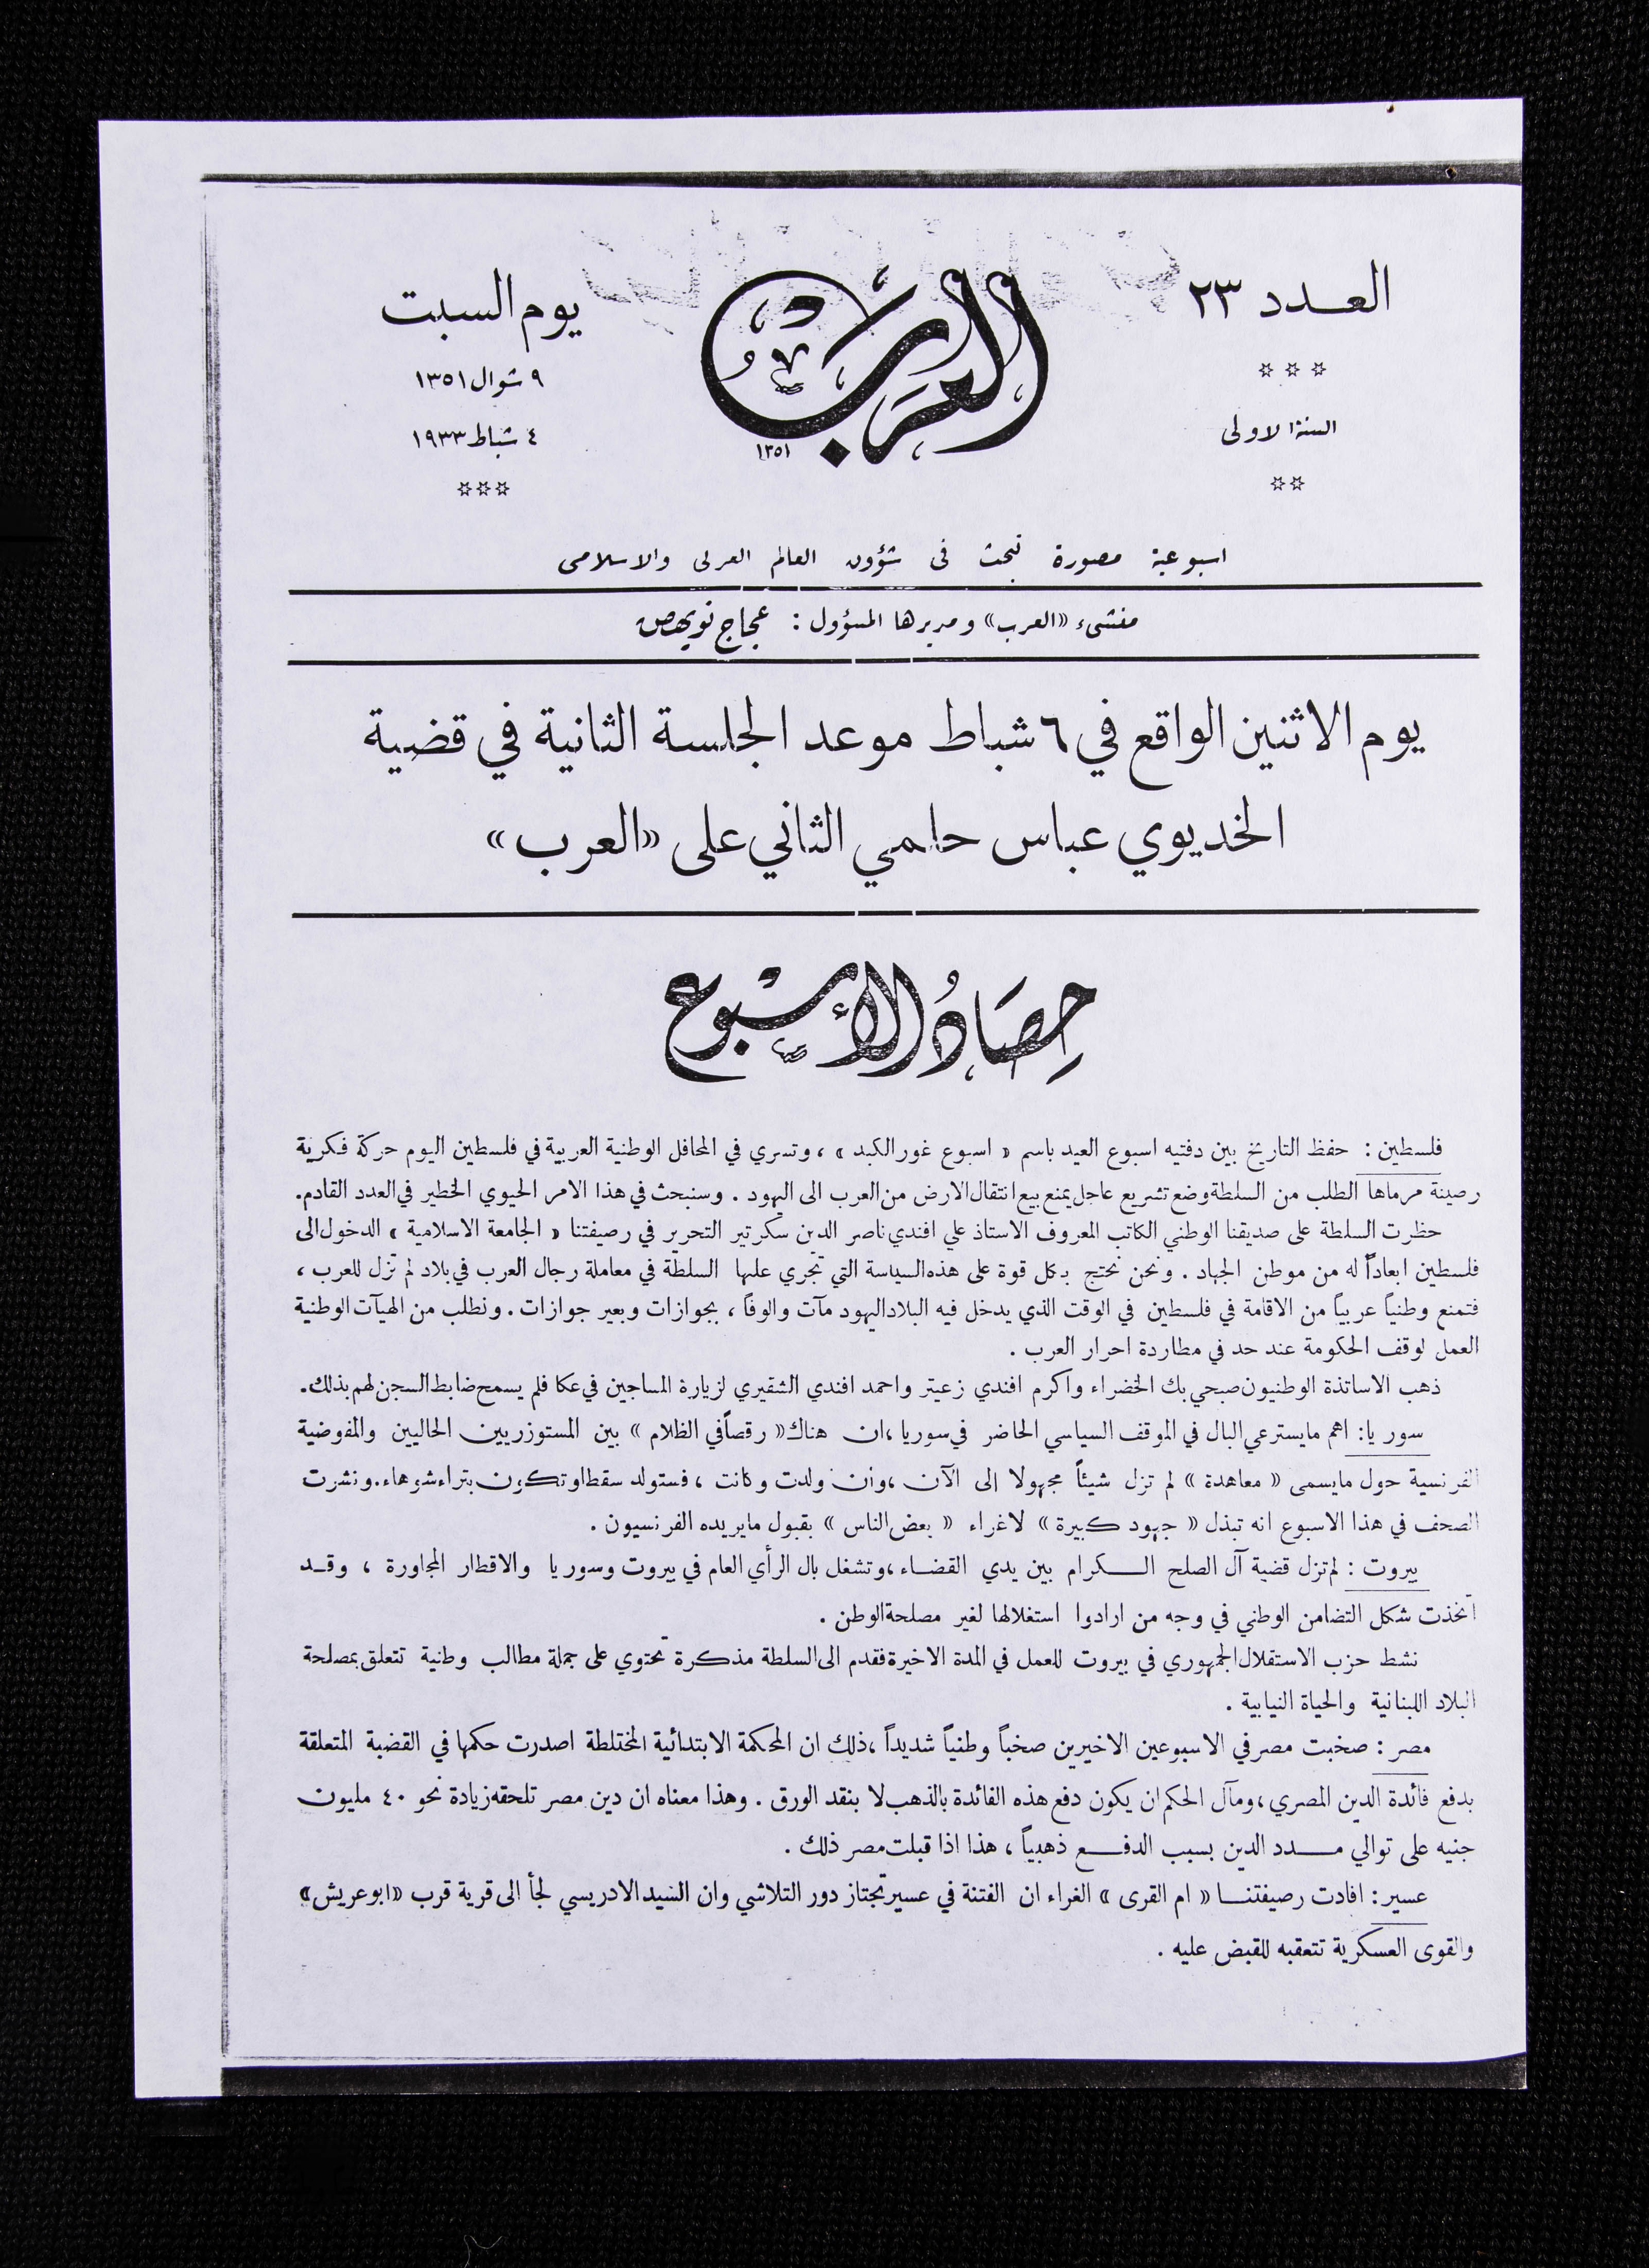 العدد ٢٣
السنة الاولى
العرب
١٣٥١
يوم السبت
٩ شوال ١٣٥١
٤ شباط ١٩٣٣
اسبوعية مصورة تبحث في شؤون العالم العربي والاسلامي
منشىء «العرب» ومديرها المسؤول : عجاج نويهض
يوم الاثنين الواقع في ٦ شباط موعد الجلسة الثانية في قضية
الخديوي عباس حلمي الثاني على «العرب»
حِصَادُ الأُسْبُوع
فلسطين : حفظ التاريخ بين دفتيه اسبوع العيد باسم « اسبوع غور الكبد » ، وتسري في المحافل الوطنية العربية في فلسطين اليوم حركة فكرية
رصينة مرماها الطلب من السلطة وضع تشريع عاجل يمنع بيع انتقال الارض من العرب الى اليهود . وسنبحث في هذا الامر الحيوي الخطير في العدد القادم.
حظرت السلطة على صديقنا الوطني الكاتب المعروف الاستاذ علي افندي ناصر الدين سكرتير التحرير في رصيفتنا « الجامعة الاسلامية » الدخول الى
فلسطين ابعاداً له من موطن الجهاد . ونحن نحتج بكل قوة على هذه السياسة التي تجري عليها السلطة في معاملة رجال العرب في بلاد لم تزل للعرب ،
فتمنع وطنياً عربياً من الاقامة في فلسطين في الوقت الذي يدخل فيه البلاد اليهود مآت والوفاً ، بجوازات وبغير جوازات . ونطلب من الهيآت الوطنية
العمل لوقف الحكومة عند حد في مطاردة احرار العرب .
ذهب الاساتذة الوطنيون صبحي بك الخضراء واكرم افندي زعيتر واحمد افندي الشقيري لزيارة المساجين في عكا فلم يسمح ضابط السجن لهم بذلك.
سوريا: اهم مايسترعي البال في الموقف السياسي الحاضر في سوريا ،ان هناك « رقصاً في الظلام » بين المستوزريين الحاليين والمفوضية
الفرنسية حول مايسمى « معاهدة » لم تزل شيئاً مجهولا إلى الآن ،وان ولدت وكانت ، فستولد سقطاو تكون بتراء شوهاء.ونشرت
الصحف في هذا الاسبوع انه تبذل « جهود كبيرة » لاغراء « بعض الناس » بقبول مايريده الفرنسيون .
بيروت : لم تزل قضية آل الصلح الكرام بين يدي القضاء ،وتشغل بال الرأي العام في بيروت وسوريا والاقطار المجاورة ، وقد
اتخذت شكل التضامن الوطني في وجه من ارادوا استغلالها لغير مصلحة الوطن .
نشط حزب الاستقلال الجمهوري في بيروت للعمل في المدة الاخيرة فقدم الى السلطة مذكرة تحتوي على جملة مطالب وطنية تتعلق بمصلحة
البلاد اللبنانية والحياة النيابية .
مصر : صخبت مصر في الاسبوعين الاخيرين صخباً وطنياً شديداً ،ذلك ان المحكمة الابتدائية المختلطة اصدرت حكمها في القضية المتعلقة
بدفع فائدة الدين المصري ،ومآل الحكم ان يكون دفع هذه الفائدة بالذهب لا بنقد الورق . وهذا معناه ان دين مصر تلحقه زيادة نحو ٤٠ مليون
جنيه على توالي مدد الدين بسبب الدفع ذهبياً ، هذا اذا قبلت مصر ذلك .
عسير : افادت رصيفتنا « ام القرى » الغراء ان الفتنة في عسير تجتاز دور التلاشي وان السيد الادريسي لجأ الى قرية قرب «ابو عريش»
والقوى العسكرية تتعقبه للقبض عليه .